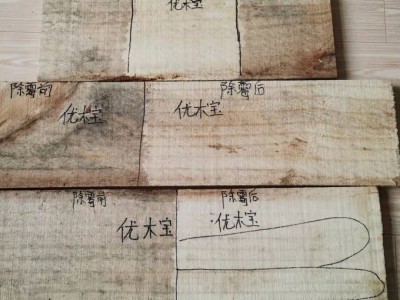 优木宝
除霉前 除霉后
优木宝 优木宝
除霉前 除霉后
优木宝 优木宝